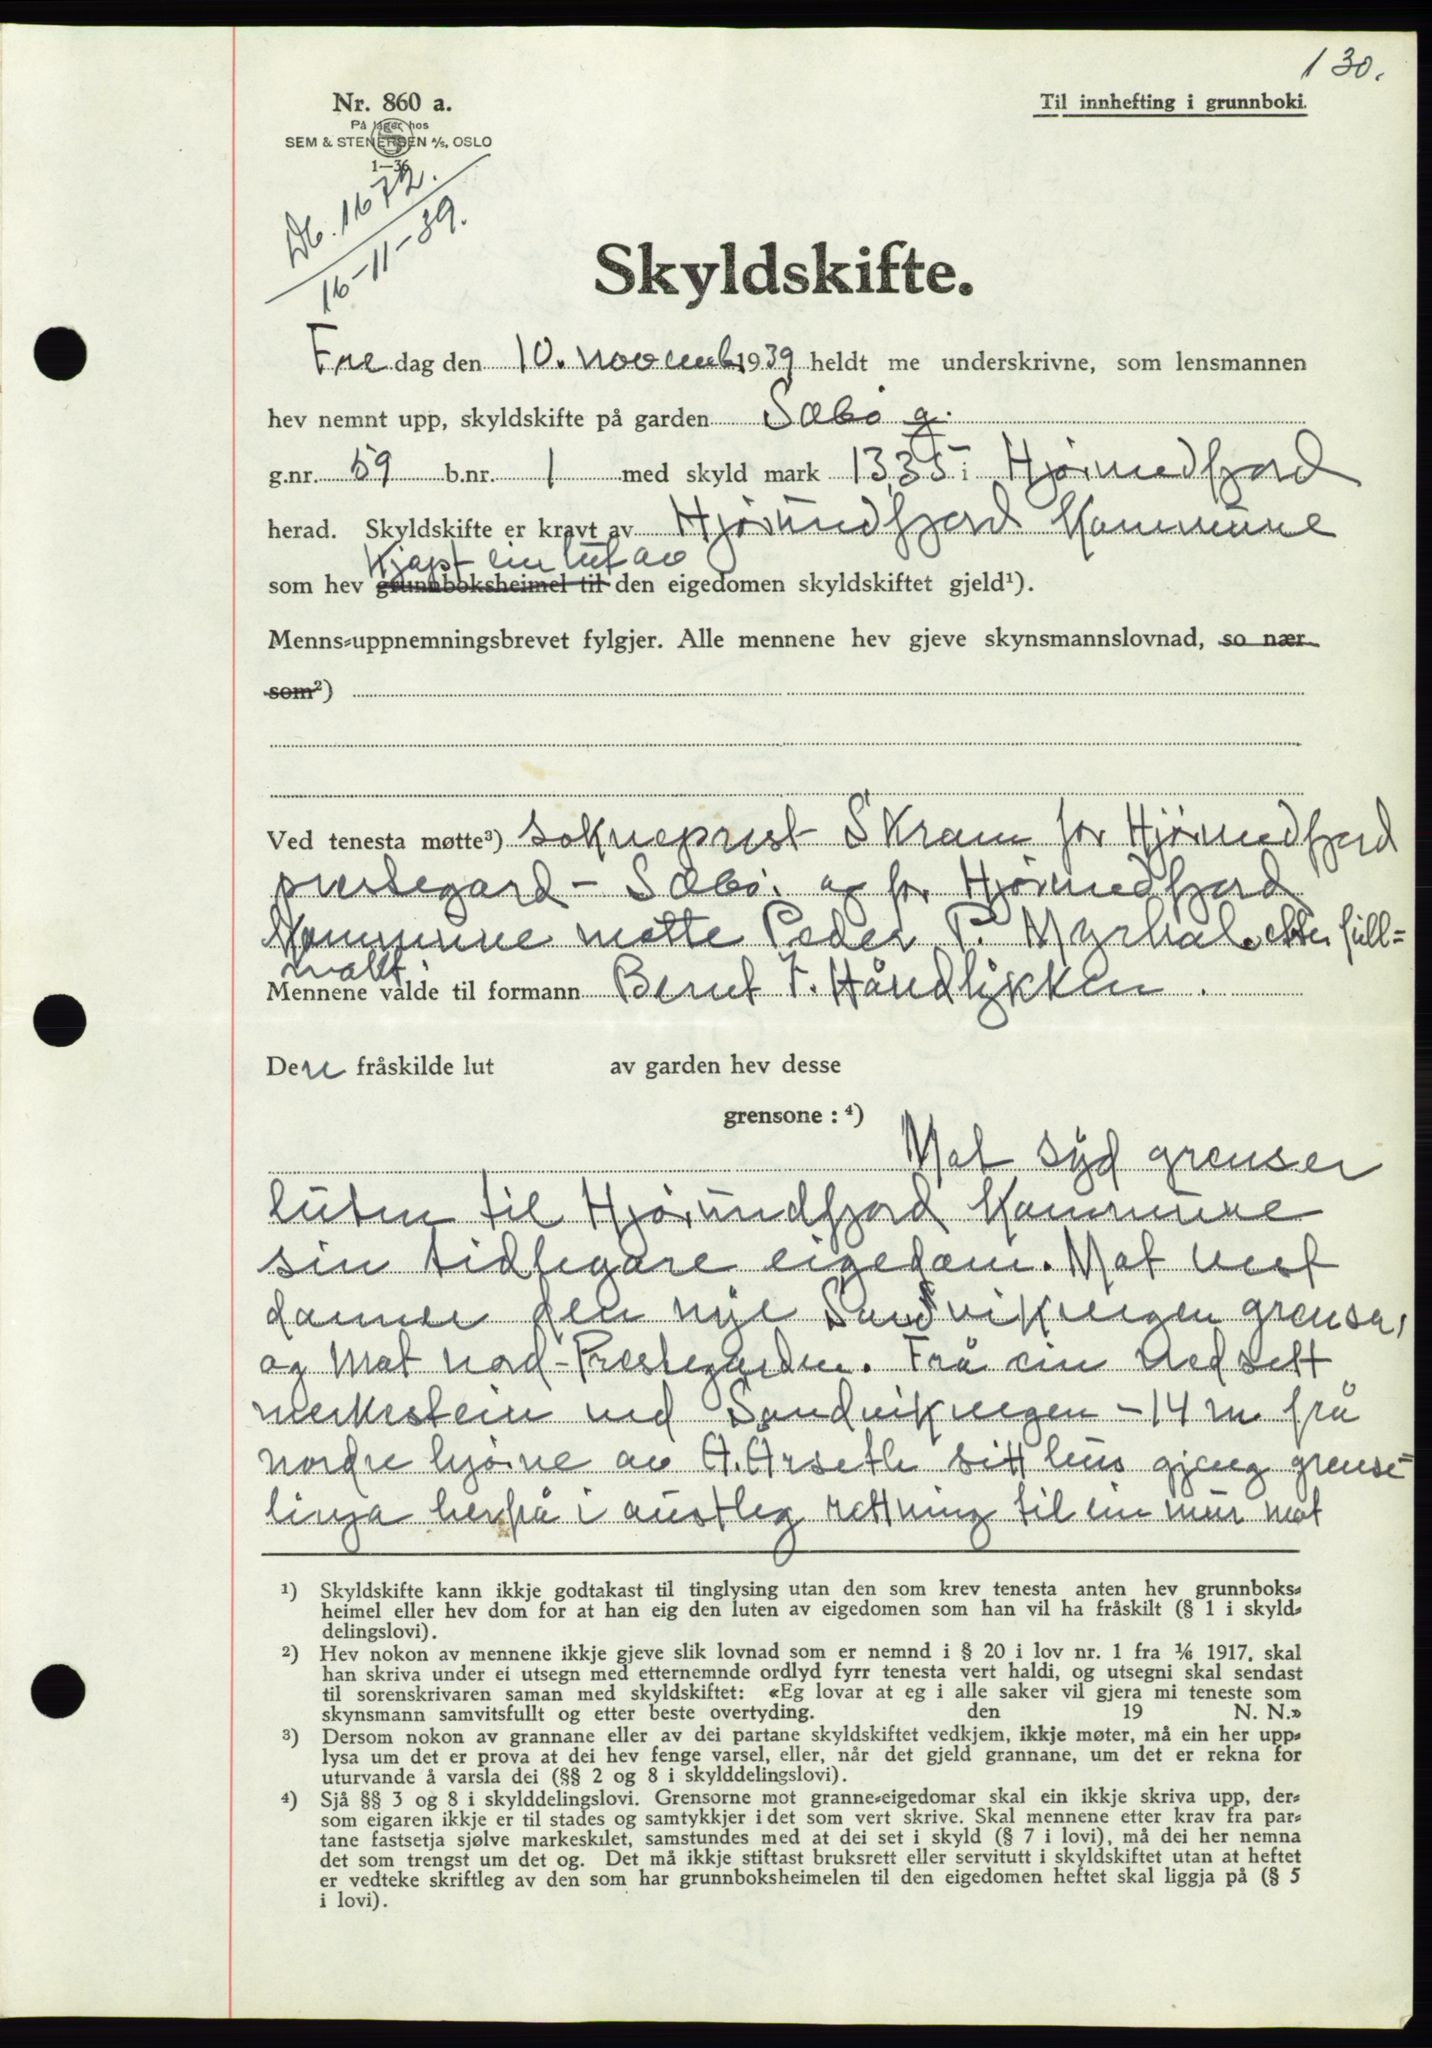 130.
Nr. 860 a.
På lager hos
SEM & STENERSEN A/S, OSLO
1—36
Til innhefting i grunnboki.
Db. 1672.
16-11-39.
Skyldskifte.
Fre dag den 10. novemb. 1939 heldt me underskrivne, som lensmannen
hev nemnt upp, skyldskifte på garden Sæbø g.
g.nr. 59 b.nr. 1 med skyld mark 13,35 i Hjørundfjord
herad. Skyldskifte er kravt av Hjørundfjord Kommune
kjøpt ein lut av
som hev grunnboksheimel til den eigedomen skyldskiftet gjeld¹).
Menns-uppnemningsbrevet fylgjer. Alle mennene hev gjeve skynsmannslovnad, so nær
som²)
Ved tenesta møtte³) sokneprest Skram for Hjørundfjord
prestegard - Sæbø. og for Hjørundfjord
Kommune møtte Peder P. Myrhol etter full=
makt.
Mennene valde til formann Bernt F. Håndlykken.
Den fråskilde lut av garden hev desse
grensone : ⁴)
Mot syd grenser
luten til Hjørundfjord Kommune
sin tidlegare eigedom. Mot vest
danner den nye Sandvikvegen grensa,
og mot nord - Prestegarden. Frå ein nedsett
merkestein ved Sandvikvegen - 14 m. frå
nordre hjørne av A. Årseth sitt hus gjeng grense-
linja herfrå i austleg rettning til ein mur mot
¹) Skyldskifte kann ikkje godtakast til tinglysing utan den som krev tenesta anten hev grunnboks-
heimel eller hev dom for at han eig den luten av eigedomen som han vil ha fråskilt (§ 1 i skyld-
delingslovi).
²) Hev nokon av mennene ikkje gjeve slik lovnad som er nemnd i § 20 i lov nr. 1 fra 1/6 1917, skal
han skriva under ei utsegn med etternemnde ordlyd fyrr tenesta vert haldi, og utsegni skal sendast
til sorenskrivaren saman med skyldskiftet: «Eg lovar at eg i alle saker vil gjera mi teneste som
skynsmann samvitsfullt og etter beste overtyding. den 19 N. N.»
³) Dersom nokon av grannane eller av dei partane skyldskiftet vedkjem, ikkje møter, må ein her upp-
lysa um det er prova at dei hev fenge varsel, eller, når det gjeld grannane, um det er rekna for
uturvande å varsla dei (§§ 2 og 8 i skylddelingslovi).
⁴) Sjå §§ 3 og 8 i skylddelingslovi. Grensorne mot granne-eigedomar skal ein ikkje skriva upp, der-
som eigaren ikkje er til stades og samtykkjer i det som vert skrive. Skal mennene etter krav fra par-
tane fastsetja sjølve markeskilet, samstundes med at dei set i skyld (§ 7 i lovi), må dei her nemna
det som trengst um det og. Det må ikkje stiftast bruksrett eller servitutt i skyldskiftet utan at heftet
er vedteke skriftleg av den som har grunnboksheimelen til den eigedomen heftet skal liggja på (§ 5
i lovi).